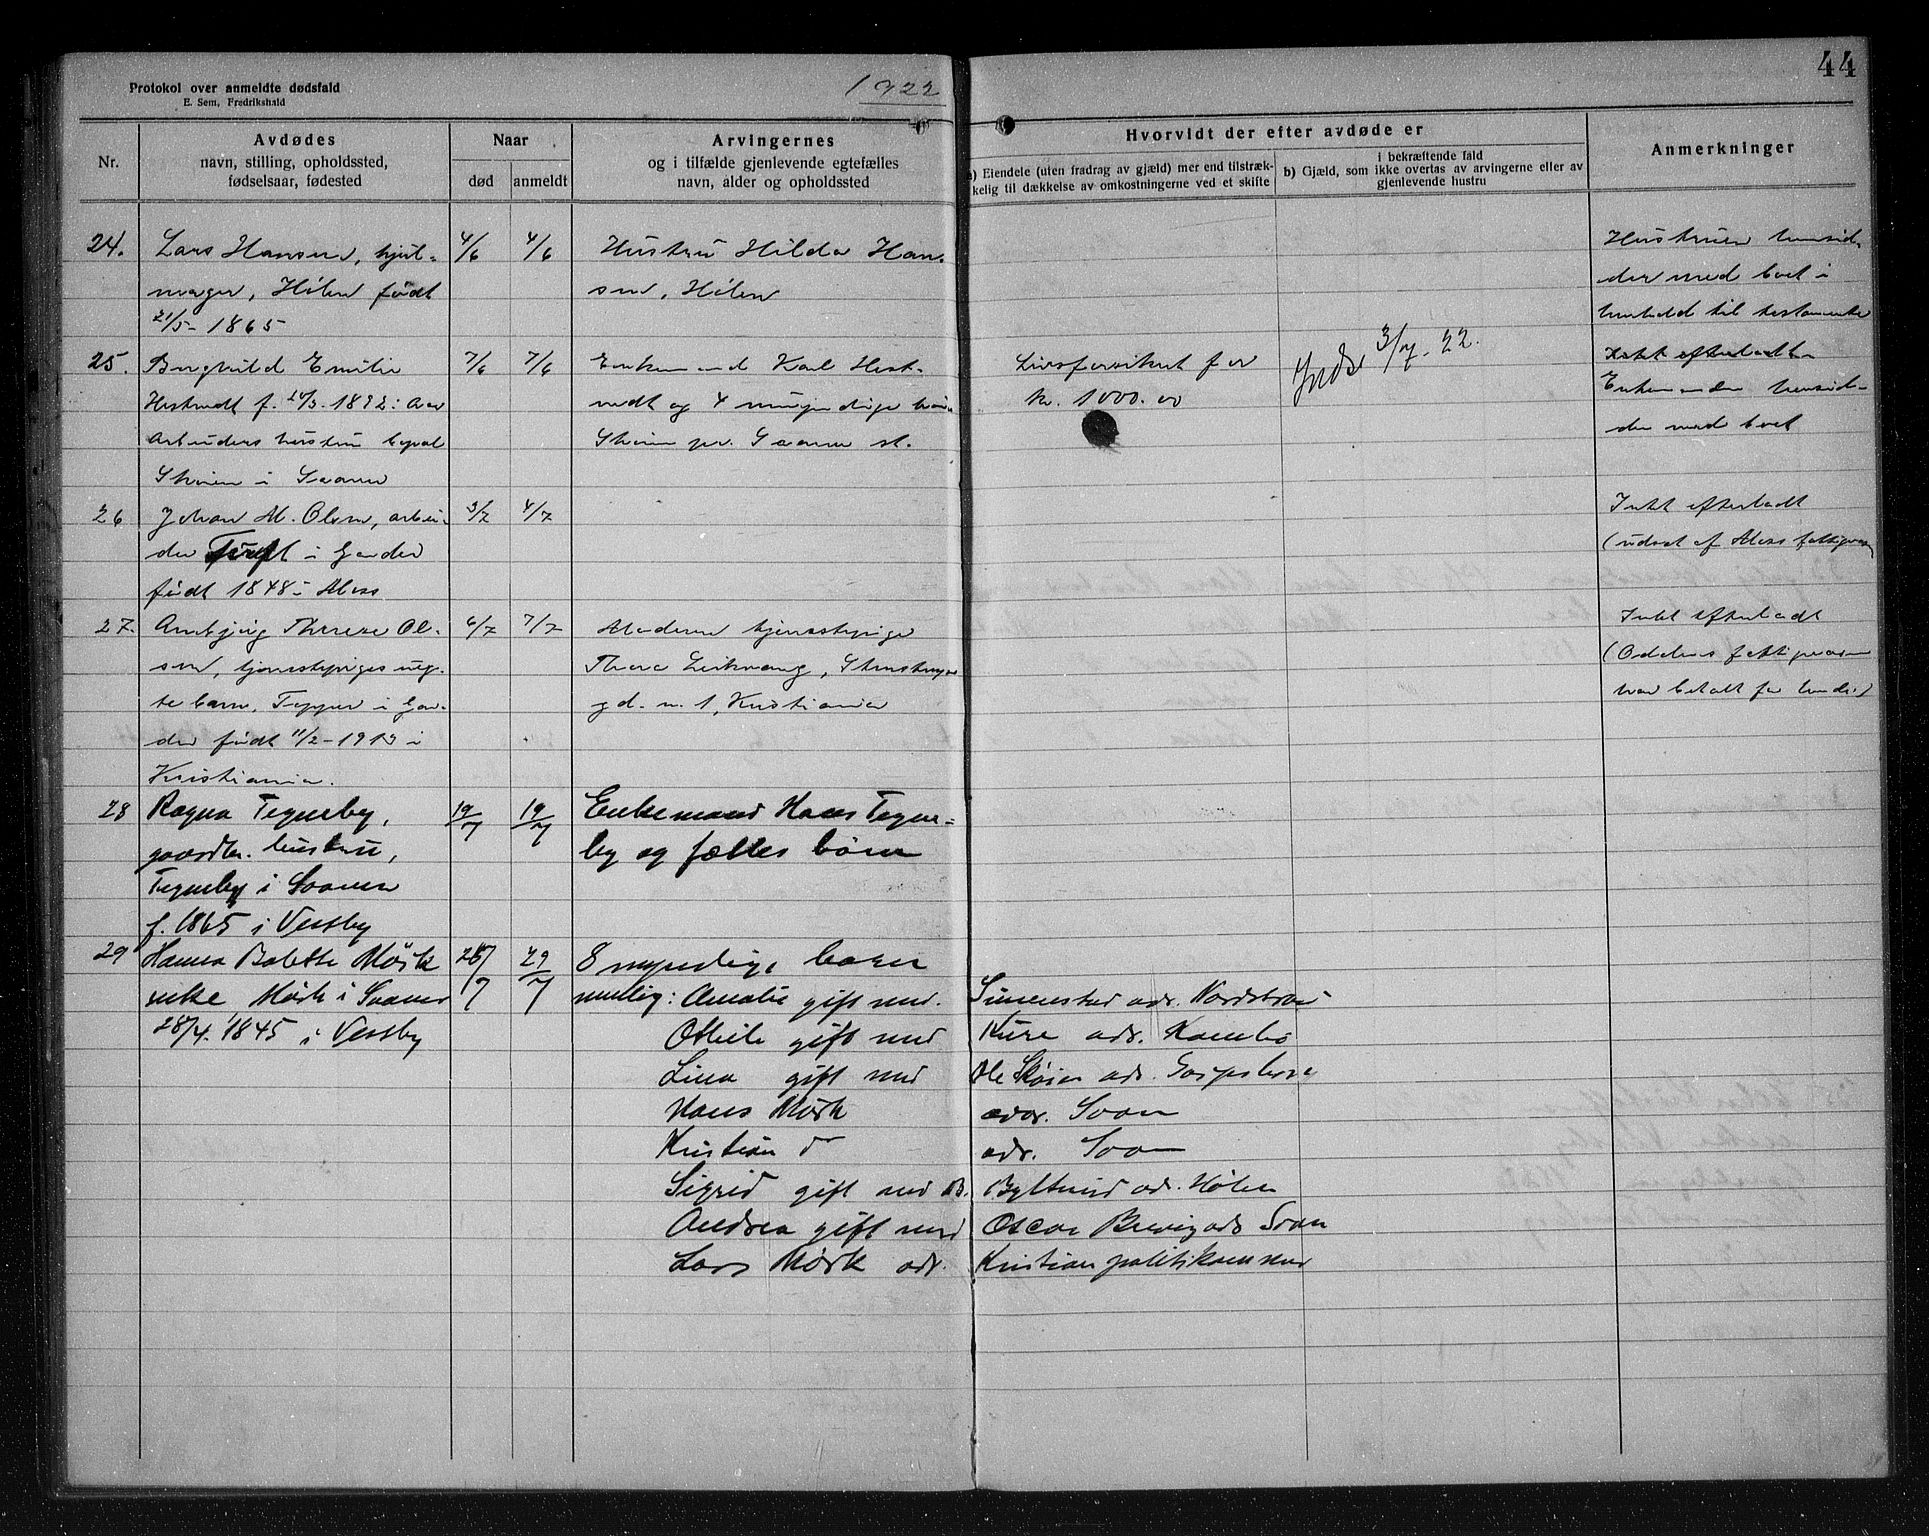 44
Protokol over anmeldte dødsfald
E. Sem, Fredrikshald
1922
Nr.
Avdødes
navn, stilling, opholdssted,
fødselsaar, fødested
Naar
død
anmeldt
Arvingernes
og i tilfælde gjenlevende egtefælles
navn, alder og opholdssted
Hvorvidt der efter avdøde er
a) Eiendele (uten fradrag av gjæld) mer end tilstræk-
kelig til dækkelse av omkostningerne ved et skifte
i bekræftende fald
b) Gjæld, som ikke overtas av arvingerne eller av
gjenlevende hustru
Anmerkninger
24.
Lars Hansen, hjul-
mager, Hølen født
21/5- 1865
4/6
4/6
Hustru Hilda Han-
sen, Hølen
Hustruen hensid-
der med boet i
henhold til testamente
25.
Borghild Emilie
f. 1892 i Aas
Arbeiders hustru
i Saaner
7/6
7/6
Enkemand Karl
og 4 umyndige børn
pr. Saaner st.
Livsforsikret for
kr. 1000.00
3/7. 22.
Intet efterladt
Enkemanden hensid-
der med boet
26
Johan M. Olsen, arbei-
der i Garder
født 1848 i Moss
3/7
4/7
Intet efterladt
(udsat af Moss fattigvæsen)
27.
Therese Ol-
sen, tjenestepiges ueg-
te barn, Tepper i Gar-
der født 11/2-1913 i
Kristiania.
6/7
7/7
Moderen tjenestepige
Thora
gd. n. 1, Kristiania
Intet efterladt
fattigvæsen
har betalt for hende)
28
Ragna Tegneby,
gaardbr. hustru,
Tegneby i Saaner
f. 1865 i Vestby
19/7
19/7
Enkemand Hans Tegne=
by og fælles børn
29
Hanna Bolette Mörk
enke Mörk i Saaner
28/4. 1845 i Vestby
/7
29/7
8 myndige børn
nemlig: Amalie gift med. Simenstad adr. Nordstrand
Othilie gift med Kure adr. Kambo
Lina gift med Ole Skøien adr.
Hans Mörk adr. Soon
Kristian do adr. Soon
Sigrid gift med B. Bylterud adr. Hølen
Andrea gift med Oscar Brevig adr Soon
Lars Mörk adr. Kristian politikammer